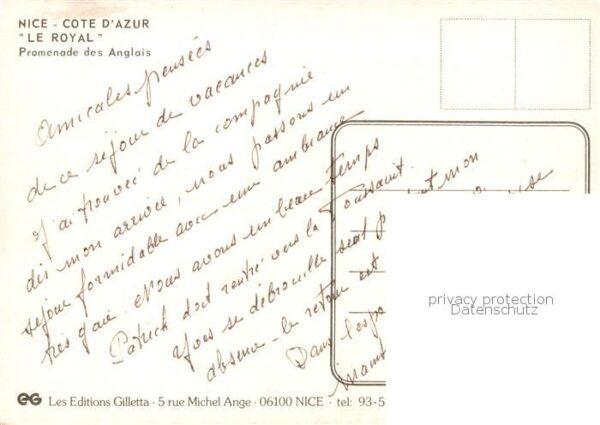 NICE - COTE D'AZUR
" LE ROYAL "
Promenade des Anglais
Amicales pensées
de ce séjour de vacances
J'ai trouvé de la compagnie
dès mon arrivée, nous passons un
séjour formidable avec une ambiance
très gaie. Nous avons un beau temps
Patrick doit rentré vers la Toussaint.
Yves se débrouille seul mon
absence - le retour est
Dans l'espo
privacy protection
Datenschutz
EG Les Editions Gilletta - 5 rue Michel Ange - 06100 NICE - tel: 93-5